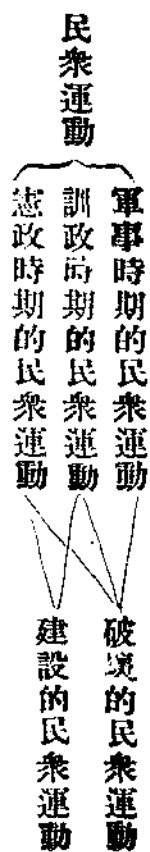 民衆運動
軍事時期的民衆運動
訓政時期的民衆運動
憲政時期的民衆運動
破壞的民衆運動
建設的民衆運動